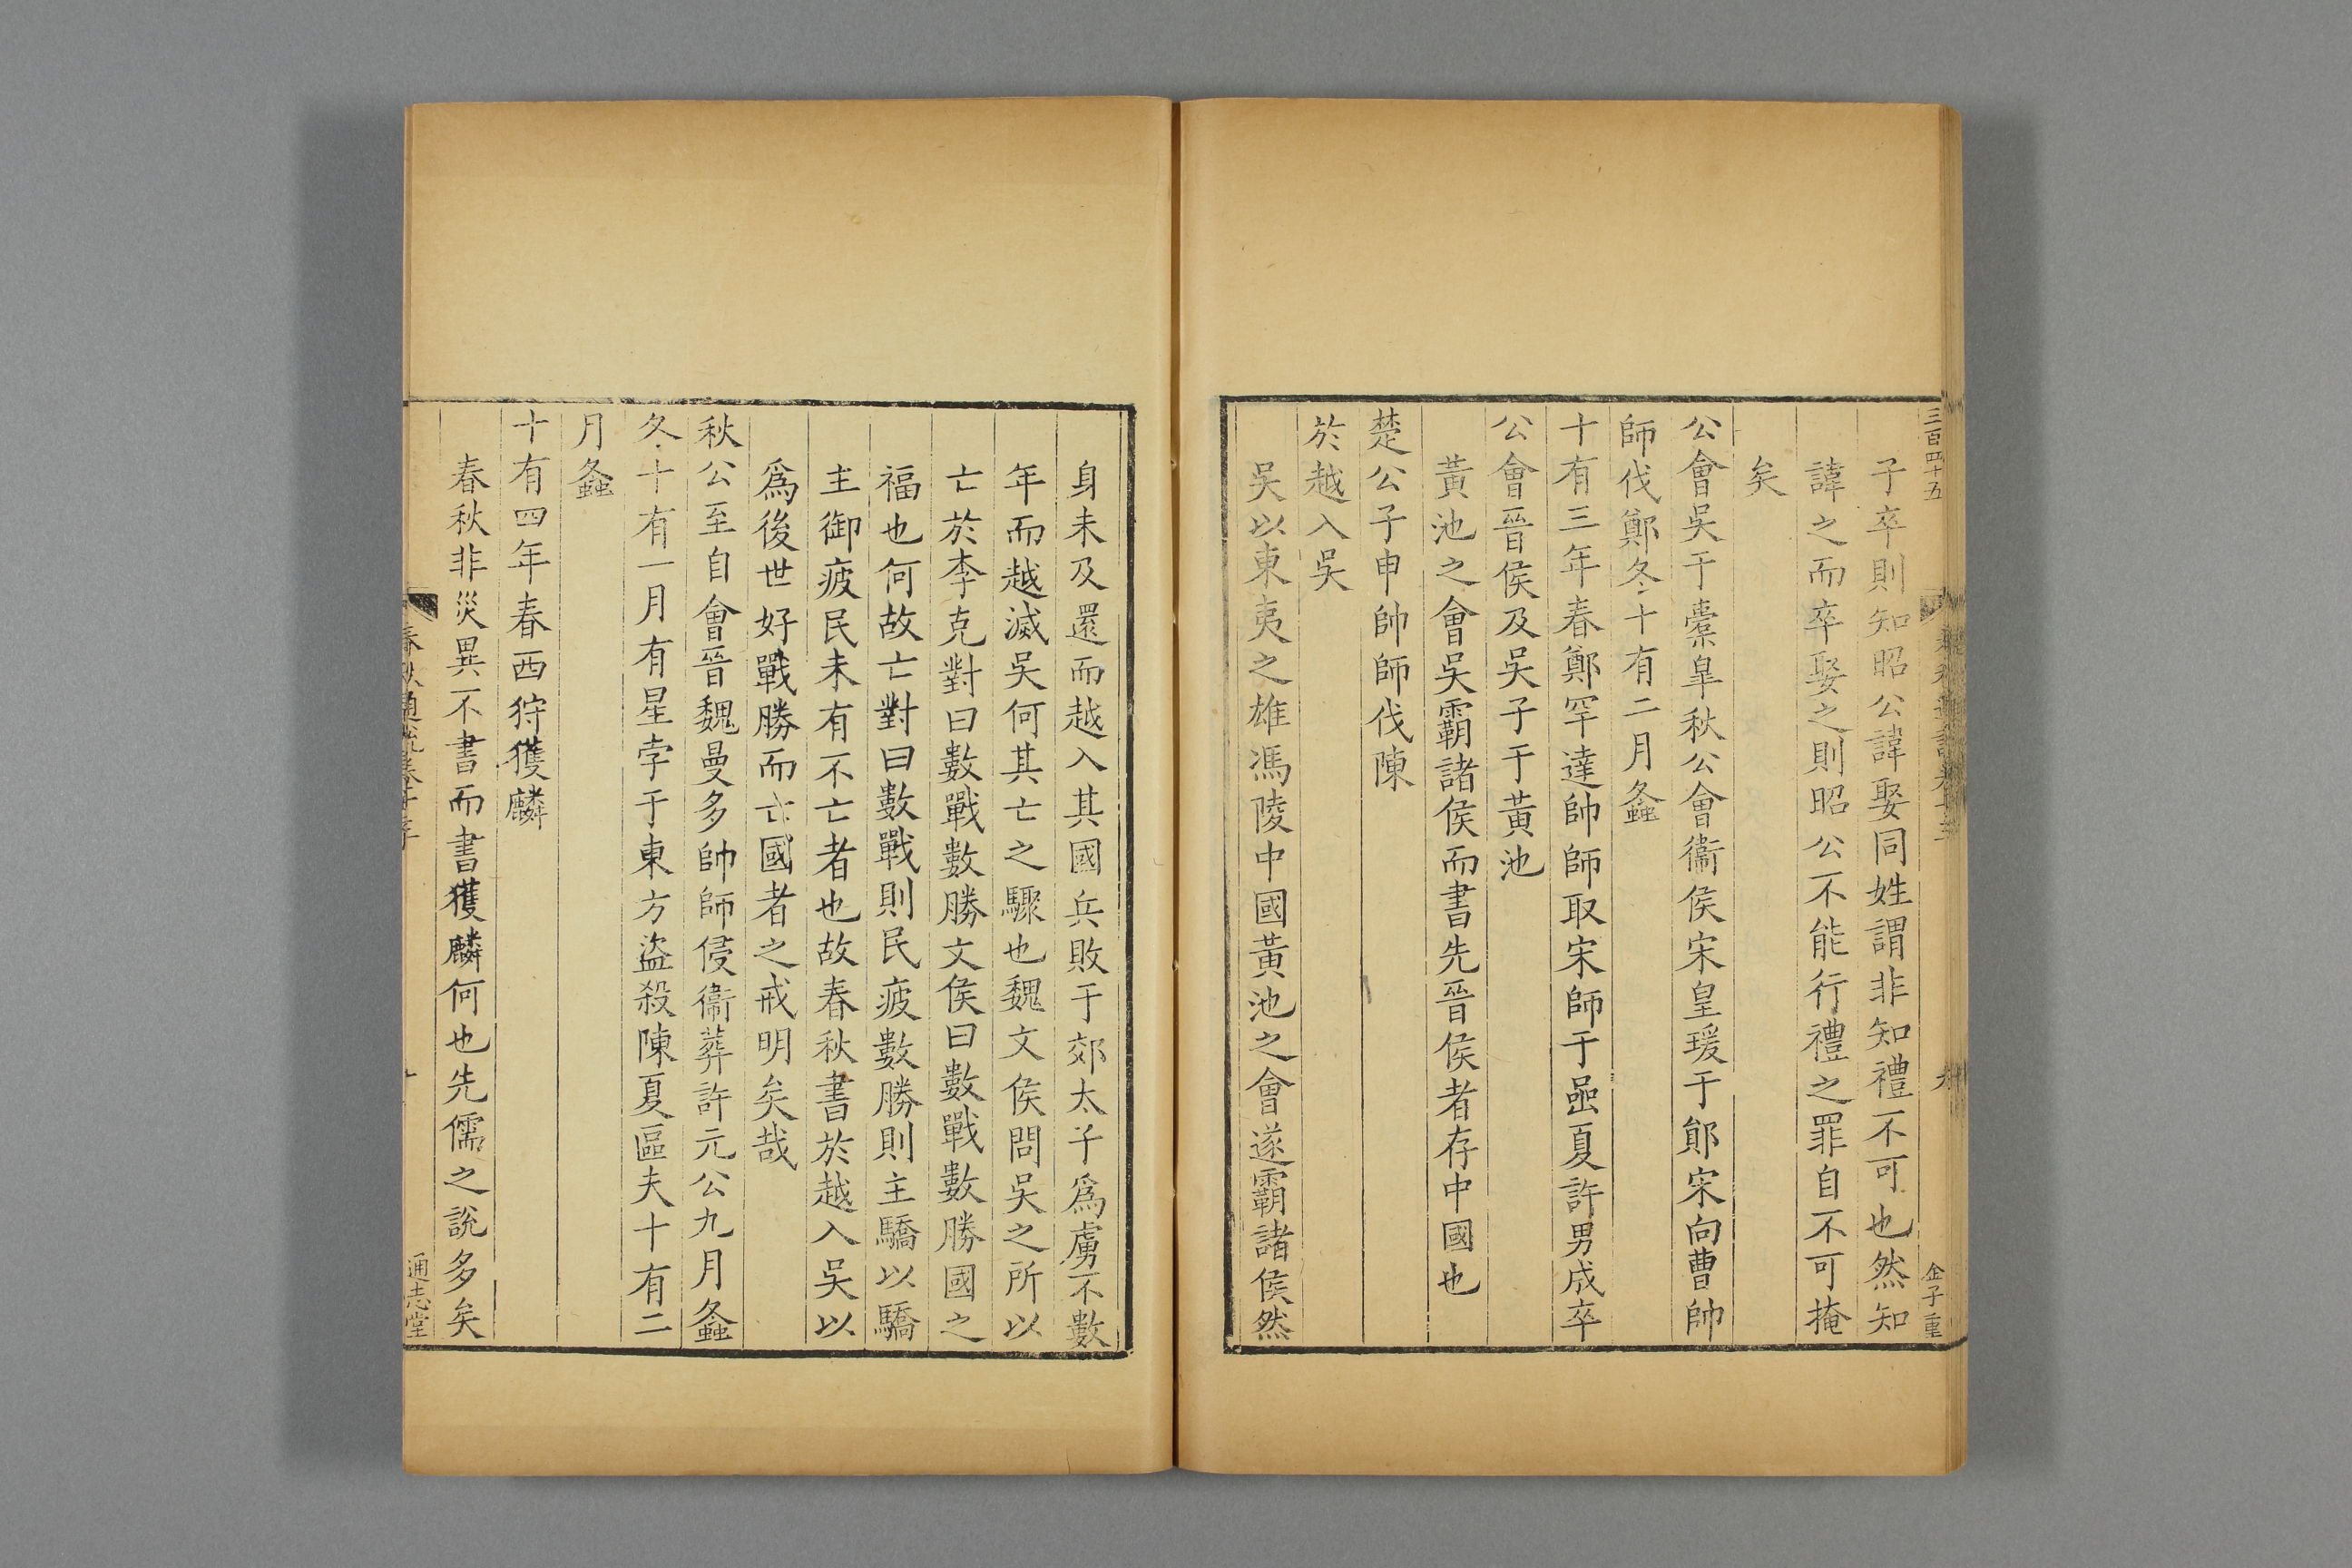 三百四十五
金子重
子卒則知昭公諱娶同姓謂非知禮不可也然知
諱之而卒娶之則昭公不能行禮之罪自不可掩
矣
公會吳于橐皐秋公會衞侯宋皇瑗于鄖宋向曹帥
師伐鄭冬十有二月螽
十有三年春鄭罕達帥師取宋師于嵒夏許男成卒
公會晉侯及吳子于黃池
黃池之會吳霸諸侯而書先晉侯者存中國也
楚公子申帥師伐陳
於越入吳
吳以東夷之雄馮陵中國黃池之會遂霸諸侯然
身未及還而越入其國兵敗于郊太子爲虜不數
年而越滅吳何其亡之驟也魏文侯問吳之所以
亡於李克對曰數戰數勝文侯曰數戰數勝國之
福也何故亡對曰數戰則民疲數勝則主驕以驕
主御疲民未有不亡者也故春秋書於越入吳以
爲後世好戰勝而亡國者之戒明矣哉
秋公至自會晉魏曼多帥師侵衞葬許元公九月螽
冬十有一月有星孛于東方盜殺陳夏區夫十有二
月螽
十有四年春西狩獲麟
春秋非災異不書而書獲麟何也先儒之說多矣
通志堂